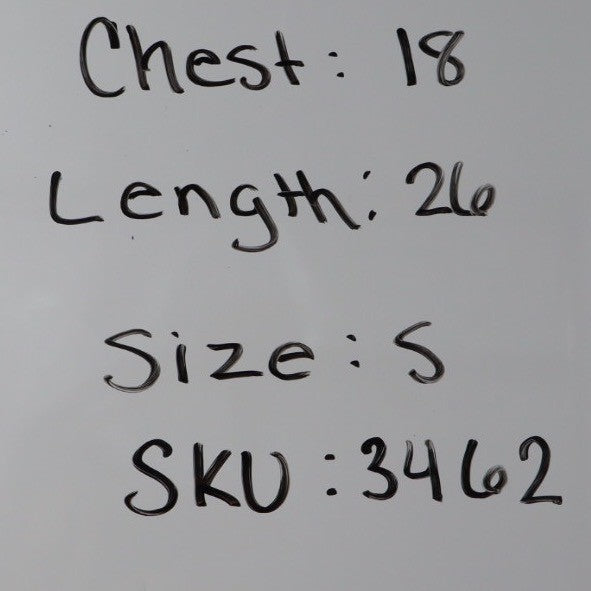 Chest: 18
Length: 26
Size: S
SKU: 3462